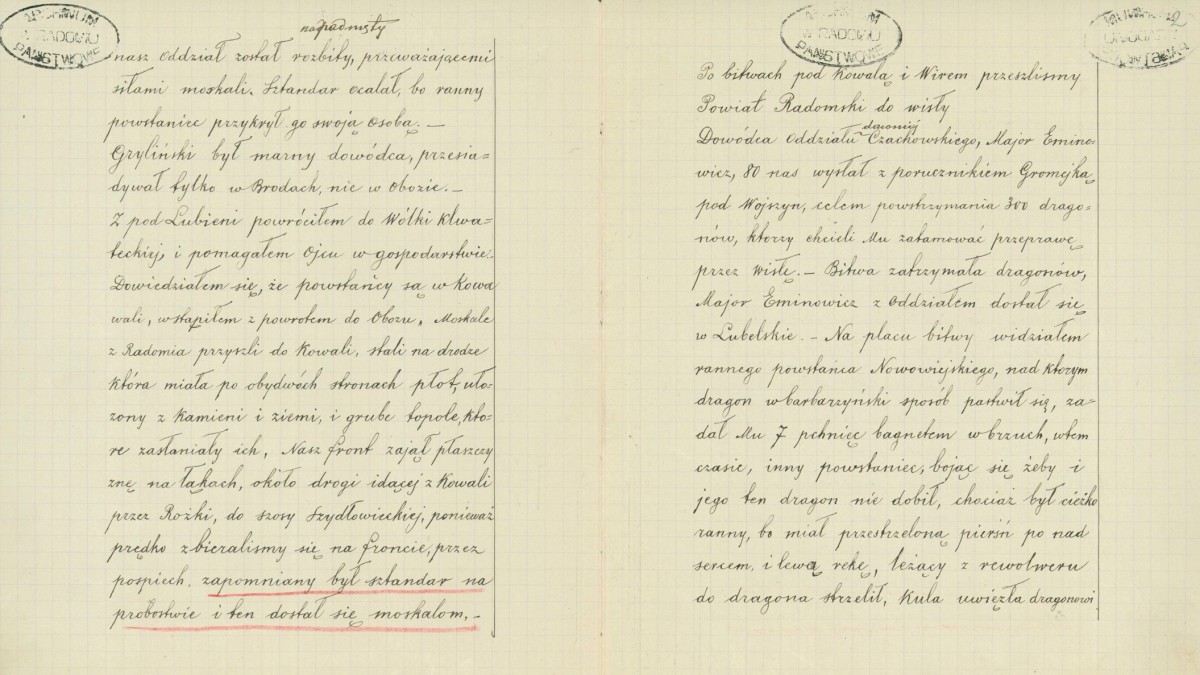 ARCHIWUM
W RADOMIU
PAŃSTWOWE
napadnięty
nasz oddział został rozbity, przeważającemi
siłami moskali. Sztandar ocalał, bo ranny
powstaniec przykrył go swoją osobą. —
Gryliński był marny dowódca, przesia=
dywał tylko w Brodach, nie w Obozie. —
Z pod Lubieni powróciłem do Wólki Klwa=
teckiej, i pomagałem Ojcu w gospodarstwie.
Dowiedziałem się, że powstańcy są w Kowa
wali, wstąpiłem z powrotem do Obozu. Moskale
z Radomia przyszli do Kowali, stali na drodze
która miała po obydwóch stronach płot, uło=
żony z kamieni i ziemi, i grube topole, któ=
re zasłaniały ich, Nasz front zajął płaszczy
znę na łąkach, około drogi idącej z Kowali
przez Rożki, do szosy Szydłowieckiej, ponieważ
prędko zbieralismy się na froncie, przez
pospiech, zapomniany był sztandar na
probostwie i ten dostał się moskalom. —
ARCHIWUM
W RADOMIU
PAŃSTWOWE
2
Po bitwach pod Kowalą i Wirem przeszlismy
Powiat Radomski do wisły
Dowódca oddziału dawniej Czachowskiego, Major Emino=
wicz, 80 nas wysłał z porucznikiem Gromejką
pod Wojszyn, celem powstrzymania 300 drago=
nów, ktorzy chcieli Mu zatamować przeprawę
przez wisłę. — Bitwa zatrzymała dragonów,
Major Eminowicz z oddziałem dostał się
w Lubelskie. — Na placu bitwy widziałem
rannego powstańca Nowowiejskiego, nad ktorym
dragon w barbarzyński sposób pastwił się, za=
dał Mu 7 pchnięc bagnetem w brzuch, wtem
czasie, inny powstaniec, bojąc się żeby i
jego ten dragon nie dobił, chociaż był cięzko
ranny, bo miał przestrzeloną pierśń po nad
sercem, i lewą rękę, leżący z rewolweru
do dragona strzelił, Kula uwięzła dragonowi